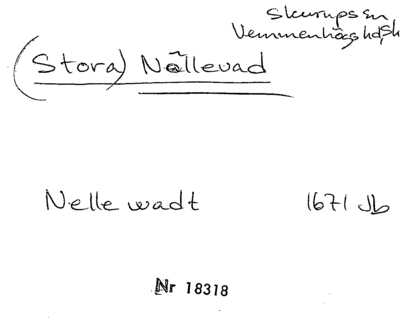 Skurups sn
Vemmenhögs hd, Sk
(Stora) Nöllevad
Nelle wadt 1671 Jb
Nr 18318